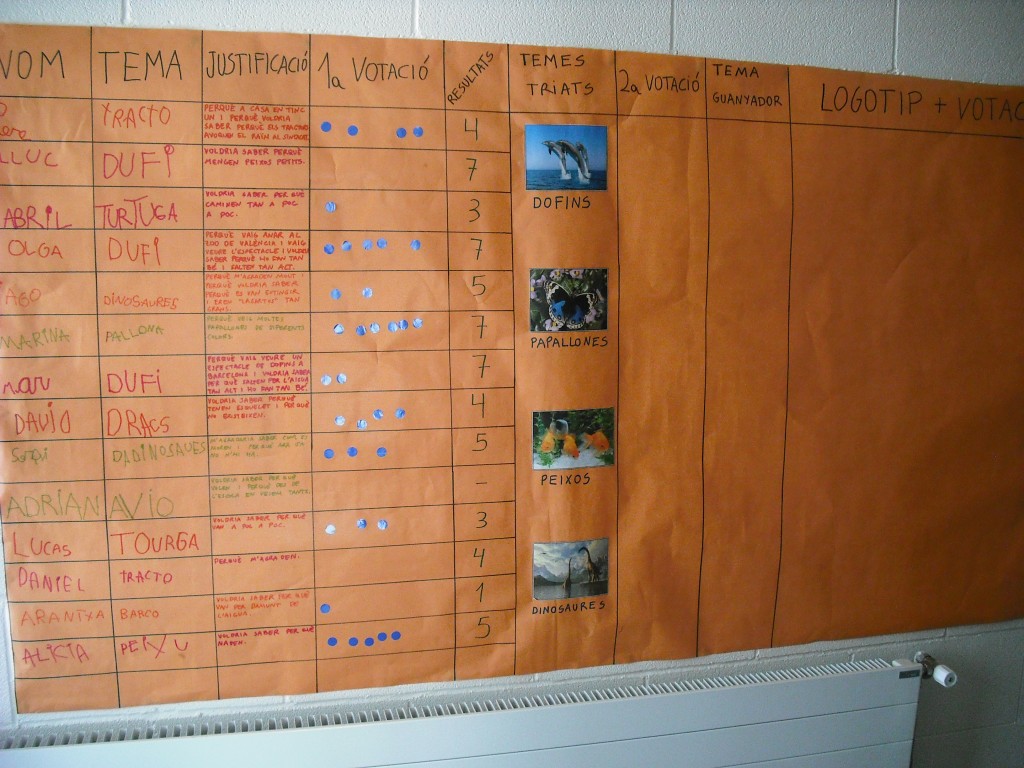 NOM TEMA JUSTIFICACIÓ 1a VOTACIÓ RESULTATS TEMES TRIATS 2a VOTACIÓ TEMA GUANYADOR LOGOTIP + VOTAC
TRACTO
PERQUÈ A CASA EN TINC
UN I PERQUÈ VOLDRIA
SABER PERQUÈ ELS TRACTORS
AVOQUEN EL RAÏM AL SINDICAT.
4
LLUC DUFI
VOLDRIA SABER PERQUÈ
MENGEN PEIXOS PETITS.
7
DOFINS
ABRIL TURTUGA
VOLDRIA SABER PER QUÈ
CAMINEN TAN A POC
A POC.
3
OLGA DUFI
PERQUÈ VAIG ANAR AL
ZOO DE VALÈNCIA I VAIG
VEURE L'ESPECTACLE I VOLDRIA
SABER PERQUÈ HO FAN TAN
BÉ I SALTEN TAN ALT.
7
IAGO DINOSAURES
PERQUÈ M'AGRADEN MOLT I
PERQUÈ VOLDRIA SABER
PERQUÈ ES VAN EXTINGIR
I EREN "LAGARTUS" TAN
GRANS.
5
MARINA PALLONA
PERQUÈ VAIG MOLTES
PAPALLONES DE DIFERENTS
COLORS.
7
PAPALLONES
MARU DUFI
PERQUÈ VAIG VEURE UN
ESPECTACLE DE DOFINS A
BARCELONA I VOLDRIA SABER
PER QUÈ SALTEN PER L'AIGUA
TAN ALT I HO FAN TAN BÉ.
7
DAVID DRACS
VOLDRIA SABER PERQUÈ
TENEN ESQUELET I PERQUÈ
4
DIDINOSAUES
M'AGRADARIA SABER COM ES
5
PEIXOS
ADRIAN AVIO
VOLDRIA SABER PER QUÈ
VOLEN I PERQUÈ DES DE
L'ESCOLA EN VEIEM TANTS.
-
LUCAS TOURGA
VOLDRIA SABER PER QUÈ
VAN A POC A POC.
3
DANIEL TRACTO
PERQUÈ M'AGRADEN.
4
DINOSAURES
ARANTXA BARCO
VOLDRIA SABER PER QUÈ
VAN PER DAMUNT DE
L'AIGUA.
1
ALICIA PEIXU
VOLDRIA SABER PER QUÈ
NADEN.
5